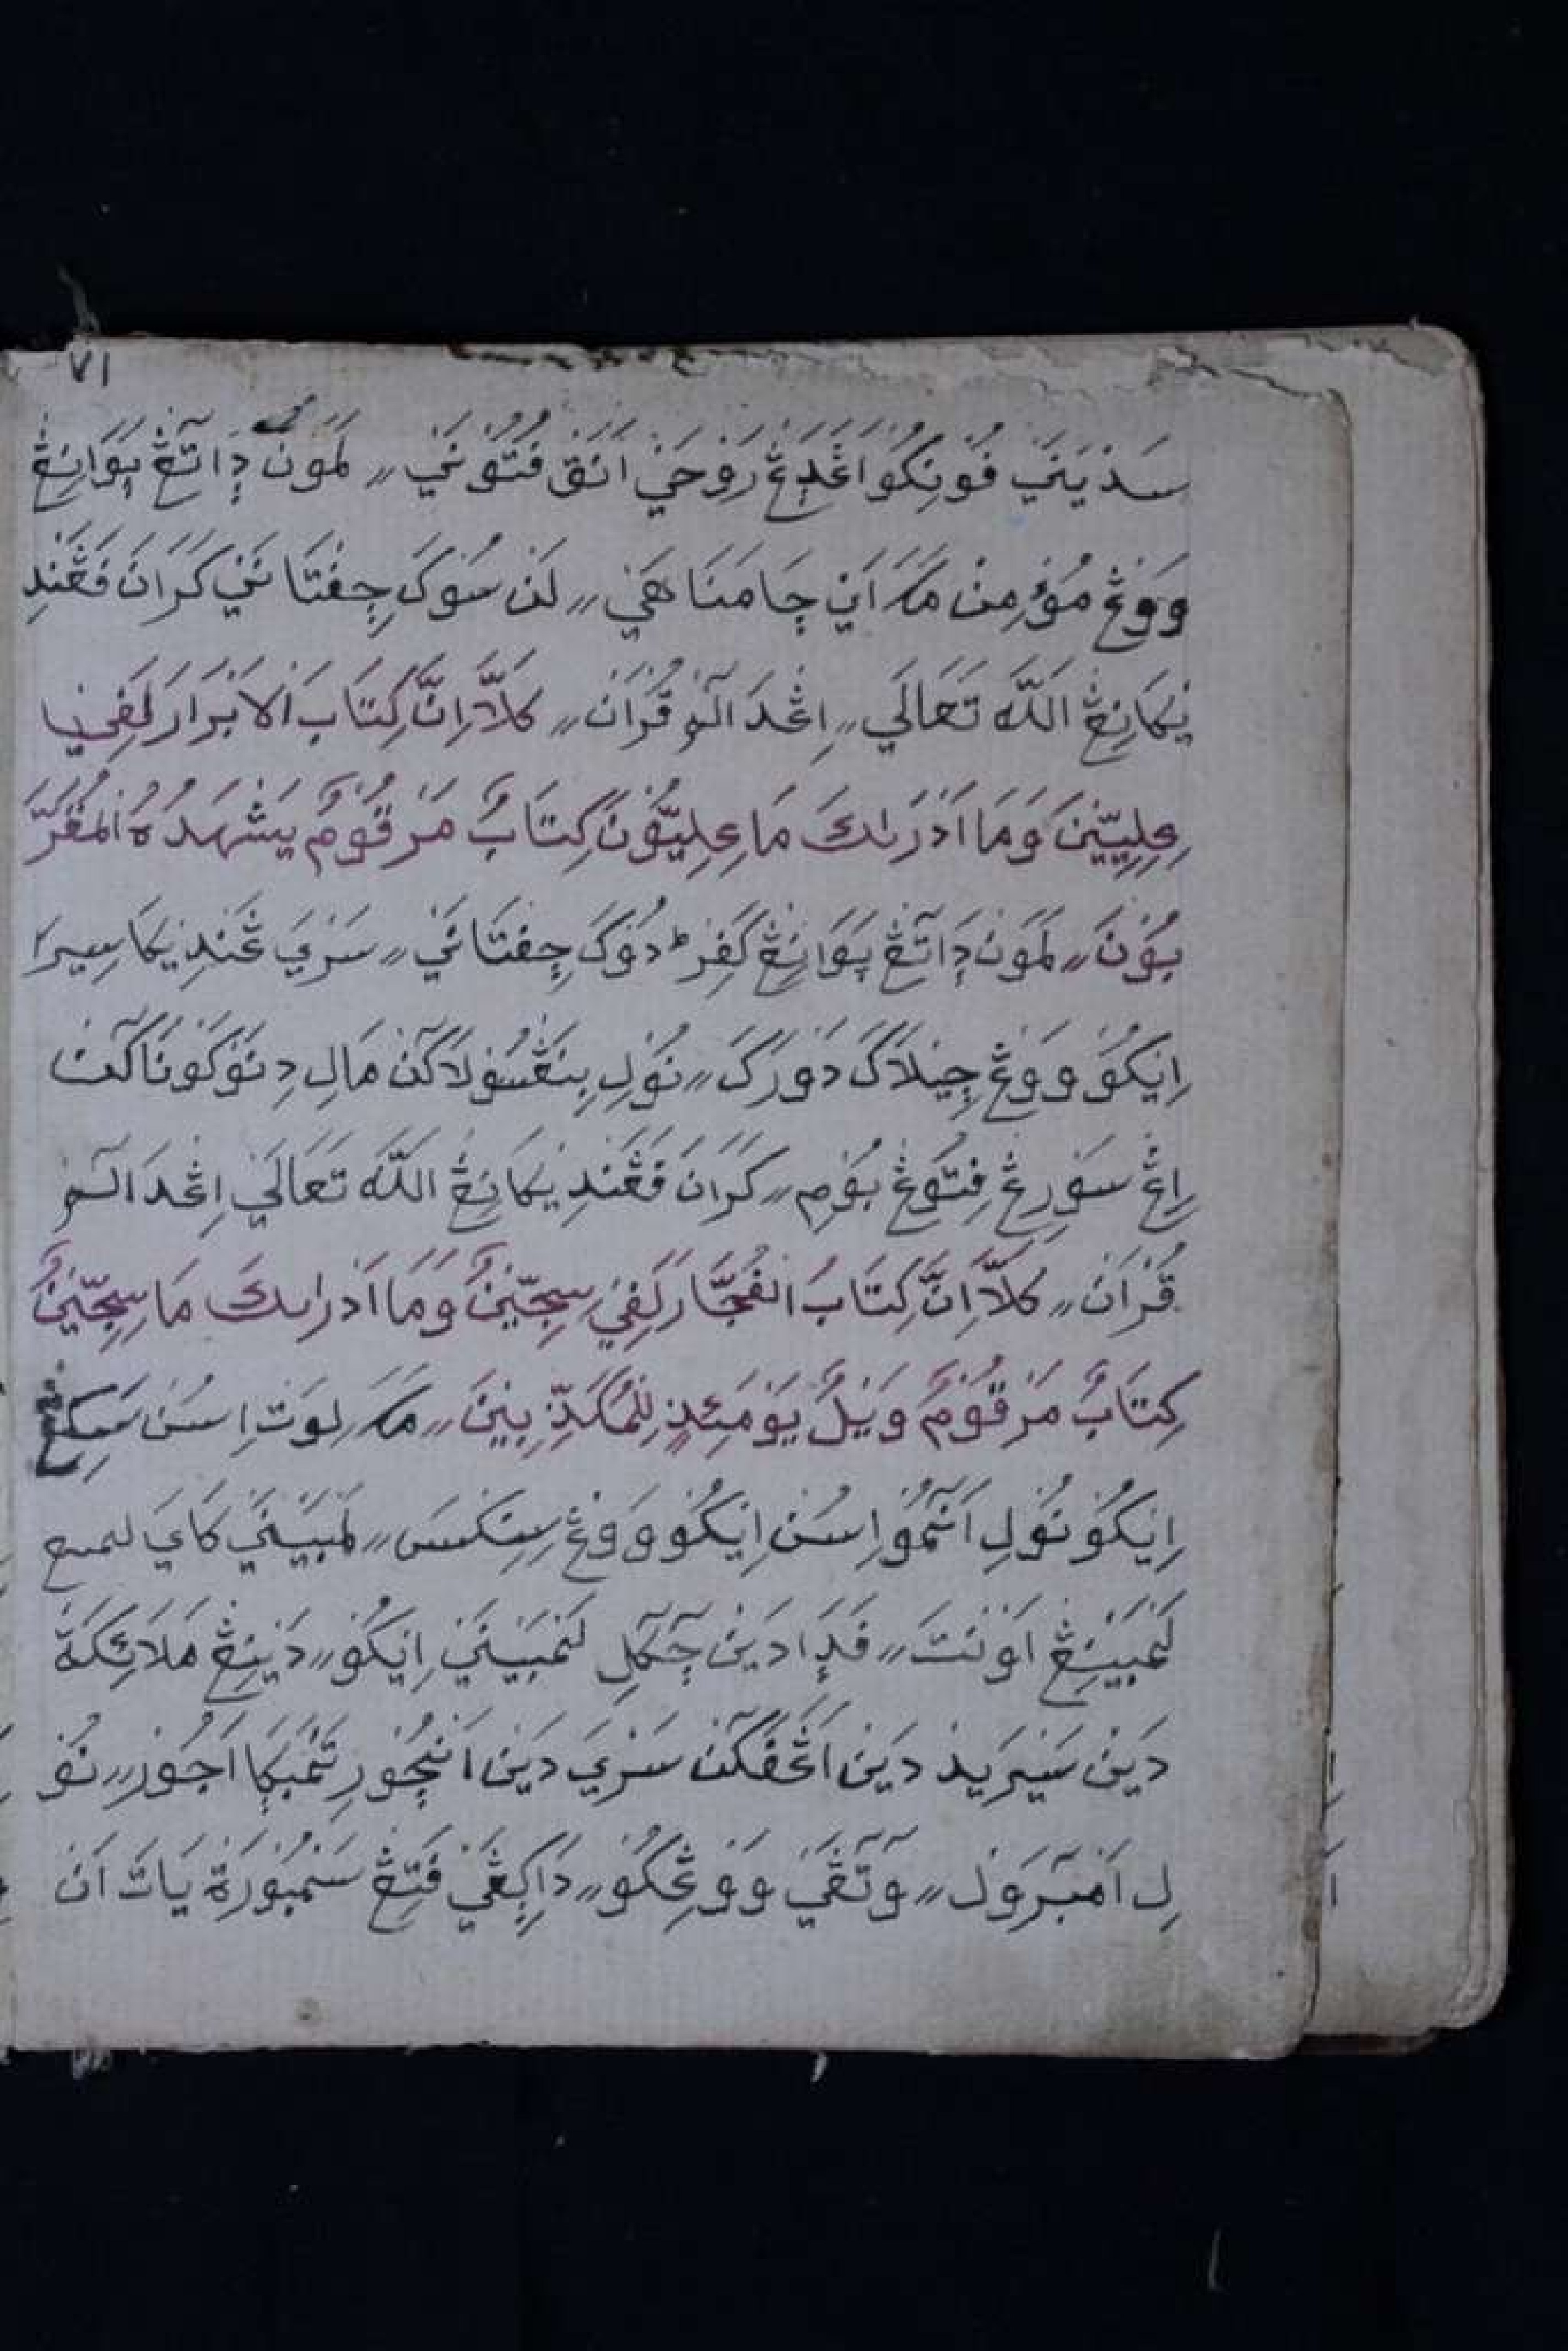 ٧١
سَذَيَنَيْ فُوْنِكُوْ اَڠْدٍيْڠْ رَوْحَيْ اَنَقْ فُتُوْنَيْ ،، لَمَوْنْ دٍاتَڠْ ٻَوَانِڠْ
وَوْڠْ مُؤْمِنْ مَكَ اَيْ چَامَنَاهَيْ ،، لَنْ سُوْكَ چِفْتَانَيْ كَرَانَ فَڠَنْدِ
يْكَانِڠْ اللّٰه تَعَالَي ،، اِڠْدَالَمْ قُرْاَنْ ،، كَلَّا اِنَّ كِتَابَ الْاَبْرَارِ لَفِيْ
عِلِّيِّيْنَ وَمَا اَدْرٰىكَ مَا عِلِّيُّوْنَ كِتَابٌ مَرْقُوْمٌ يَشْهَدُهُ الْمُقَرَّ
بُوْنَ ،، لَمَوْنْ دٍاتَڠْ ٻَوَانِڠْ كَفِرْ دُوْكَ چِفْتَانَيْ ،، سَرْيَ ڠَنْدِيْكَا سِيْرَا
اِيْكُوْ وَوْڠْ چِيْلَاكَ دَوْرَكَ ،، نُوْلِ بِنَڠْسُوْلَاكَنْ مَالِ دِنَوْكَوْنَاكَنْ
اِڠْ سَوْرِڠْ فِتُوْڠْ بُوْمِ ،، كَرَانَ فَڠَنْدِيْكَانِڠْ اللّٰه تَعَالَيْ اِڠْدَالَمْ
قُرْاَنْ ،، كَلَّا اِنَّ كِتَابَ الْفُجَّارِ لَفِيْ سِجِّيْنٍ وَمَا اَدْرٰىكَ مَا سِجِّيْنٌ
كِتَابٌ مَرْقُوْمٌ وَيْلٌ يَوْمَئِذٍ لِلْمُكَذِّبِيْنَ ،، مَكَ لِوَتْ اِسُنْ سَكِڠْ
اِيْكُوْ نُوْلِ اَنَمُوْ اِسُنْ اِيْكُوْ وَوْڠْ سِنِكْسَ ،، لَمْبَيْنَيْ كَايَ
لَمْبَيْنِڠْ اَوْنْتَ ،، فَدٍا دَيْنْ چَكَلِ لَمْبَيْنَيْ اِيْكُوْ ،، دَيْنِڠْ مَلَائِكَةْ
دَيْنْ سَيْرَيْدْ دَيْنْ اَڠْفَكَنْ سَرْيَ دَيْنْ اَنْچُوْرِ تَمْبَكٍا اَجُوْرْ ،، نُوْ
لِ اَمْبَرَوَلْ ،، وَتَڠَيْ وَوْڠِكُوْ ،، دٍاكِڠَيْ فَتِڠْ سَمْبُوْرَةْ يَاتَ اَنْ